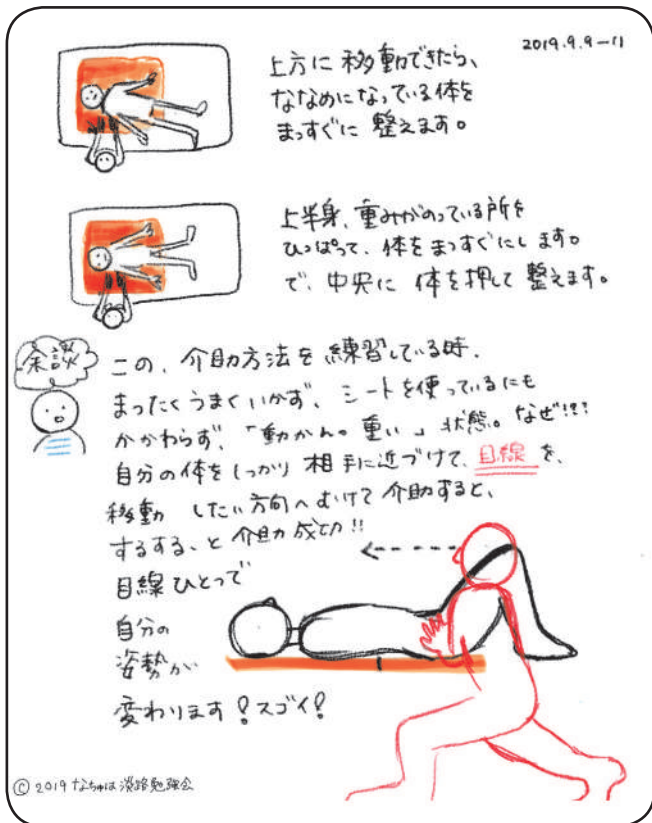 2019.9.9-11
上方に移動できたら、
ななめになっている体を
まっすぐに整えます。
上半身、重みがのっている所を
ひっぱって、体をまっすぐにします。
で、中央に体を押して整えます。
余談
この、介助方法を練習している時、
まったくうまくいかず、シートを使っているにも
かかわらず、「動かん。重い」状態。なぜ!!?
自分の体をしっかり相手に近づけて、目線を、
移動したい方向へむけて介助すると、
するする、と介助成功!!
目線ひとつで
自分の
姿勢が
変わります!スゴイ!
© 2019 なちゅは淡路勉強会